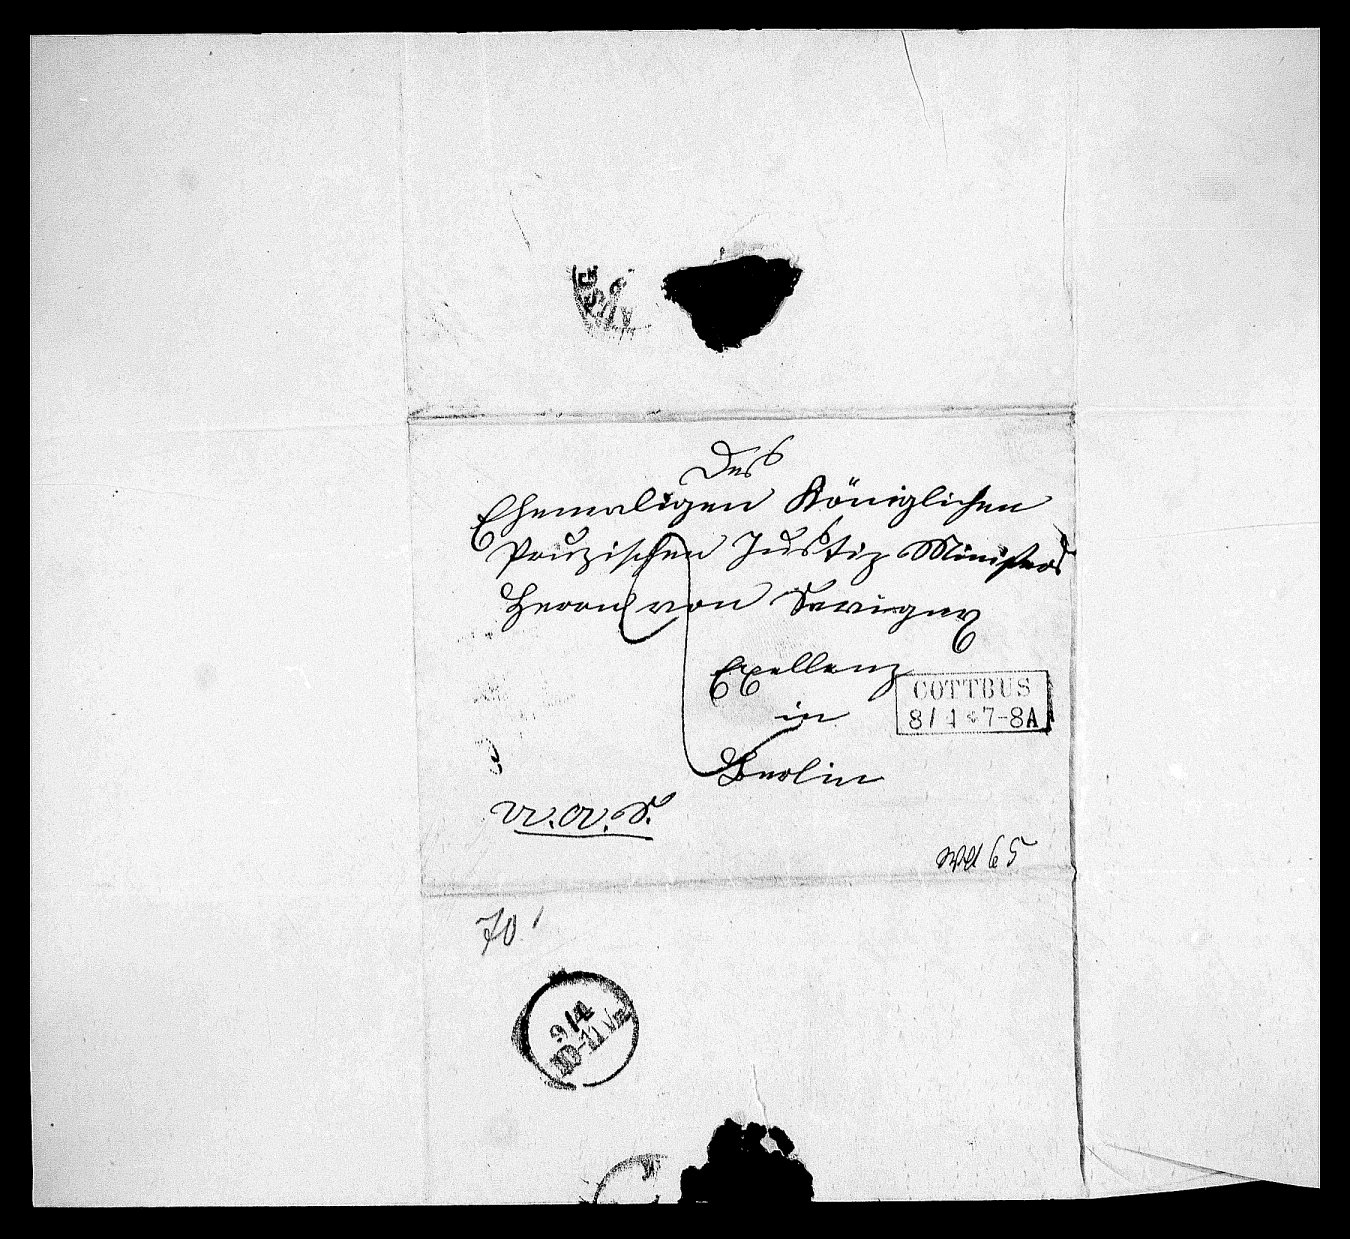 Des
Ehemaligen Königlichen
Preuzischen Justiz Ministers
Herrn von Savigny
Exellenz
in
COTTBUS
8/4 * 7-8A
Berlin
65
70
9/4
10-11½